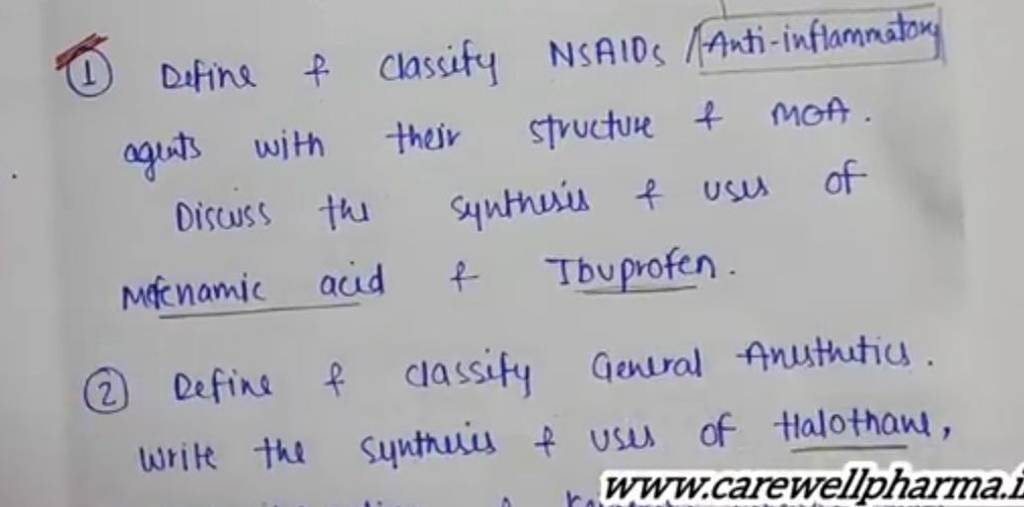 ① Define & classify NSAIDs / Anti-inflammatory
agents with their structure & MOA.
Discuss the synthesis & uses of
Mefenamic acid & Ibuprofen.
② Define & classify General Anesthetics.
Write the synthesis & uses of Halothane,
www.carewellpharma.i